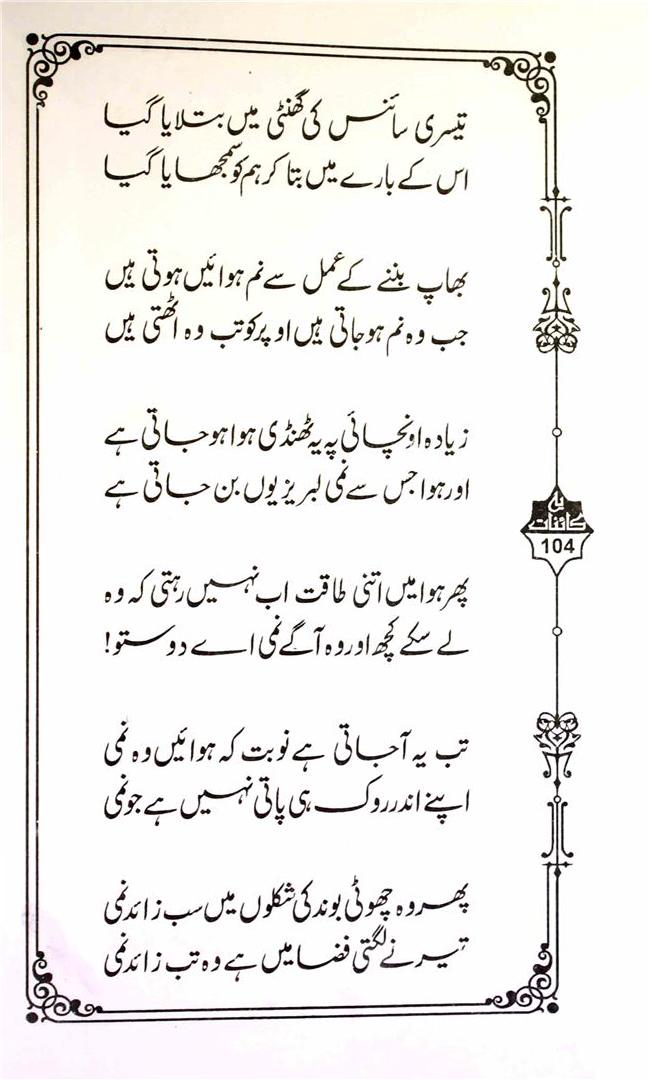 تیسری سائنس کی گھنٹی میں بتلایا گیا
اس کے بارے میں بتا کر ہم کو سمجھایا گیا
بھاپ بننے کے عمل سے نم ہوائیں ہوتی ہیں
جب وہ نم ہو جاتی ہیں اوپر کو تب وہ اٹھتی ہیں
زیادہ اونچائی پہ یہ ٹھنڈی ہوا ہو جاتی ہے
اور ہوا جس سے نمی لبریز یوں بن جاتی ہے
پھر ہوا میں اتنی طاقت اب نہیں رہتی کہ وہ
لے سکے کچھ اور وہ آگے نمی اے دوستو!
تب یہ آجاتی ہے نوبت کہ ہوائیں وہ نمی
اپنے اندر روک ہی پاتی نہیں ہے جو نمی
پھر وہ چھوٹی بوند کی شکلوں میں سب زائد نمی
تیرنے لگتی فضا میں ہے وہ تب زائد نمی
یہ
کائنات
104